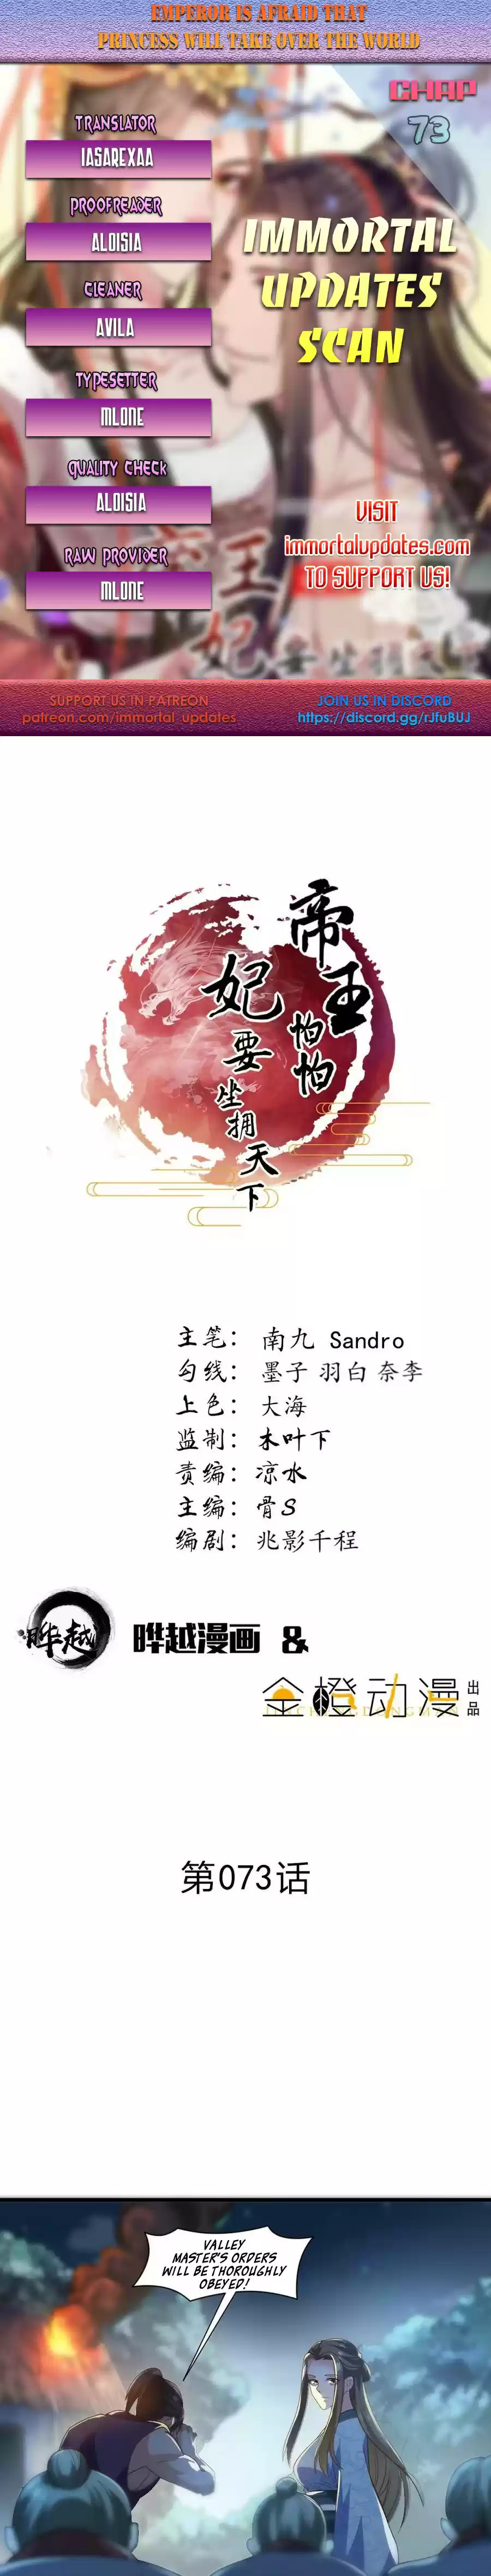 EMPEROR IS AFRAID THAT
PRINCESS WILL TAKE OVER THE WORLD
CHAP
73
TRANSLATOR
IASAREXAA
PROOFREADER
ALOISIA
CLEANER
AVILA
TYPESETTER
MLONE
QUALITY CHECK
ALOISIA
RAW PROVIDER
MLONE
IMMORTAL
UPDATES
SCAN
VISIT
immortalupdates.com
TO SUPPORT US!
SUPPORT US IN PATREON
patreon.com/immortal_updates
JOIN US IN DISCORD
https://discord.gg/rJfuBUJ
帝王
怕怕
妃要坐拥天下
主笔: 南九 Sandro
勾线: 墨子 羽白 奈李
上色: 大海
监制: 木叶下
责编: 凉水
主编: 骨S
编剧: 兆影千程
晔越
晔越漫画 &
金橙动漫 出品
第073话
VALLEY
MASTER'S ORDERS
WILL BE THOROUGHLY
OBEYED!